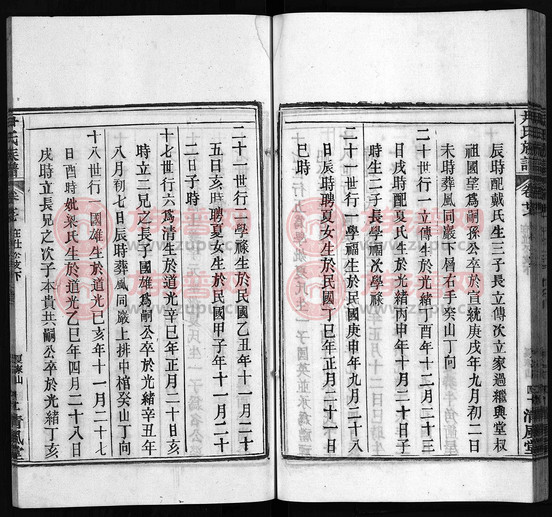 尹氏族譜
辰時配戴氏生三子長立傳次立家過繼與堂叔
祖國望爲嗣孫公卒於宣統庚戌年九月初二日
未時葬風同嚴下層右手癸山丁向
二十世行一立傳生於光緒丁酉年十二月二十三
日戌時配夏氏生於光緒丙申年十月二十日子
時生二子長學福次學祿
二十一世行一學福生於民國庚申年九月二十八
日辰時聘夏女生於民國丁巳年八月二十一日
巳時
清風堂
二十一世行一學祿生於民國乙丑年十一月二十
五日亥時聘夏女生於民國甲子年十一月二十
二日子時
十七世行六爲清生於道光辛巳年正月二十七日
時立二兄之長子國雄爲嗣公卒於光緒辛丑年
八月初七日辰時葬風同嚴上排中棺癸山丁向
十八世行一國雄生於道光己亥年十一月二十三
日酉時妣梁氏生於道光乙巳年四月二十八日
戌時立長兄之次子本貴共嗣公卒於光緒丁亥
尹氏族譜
清風堂